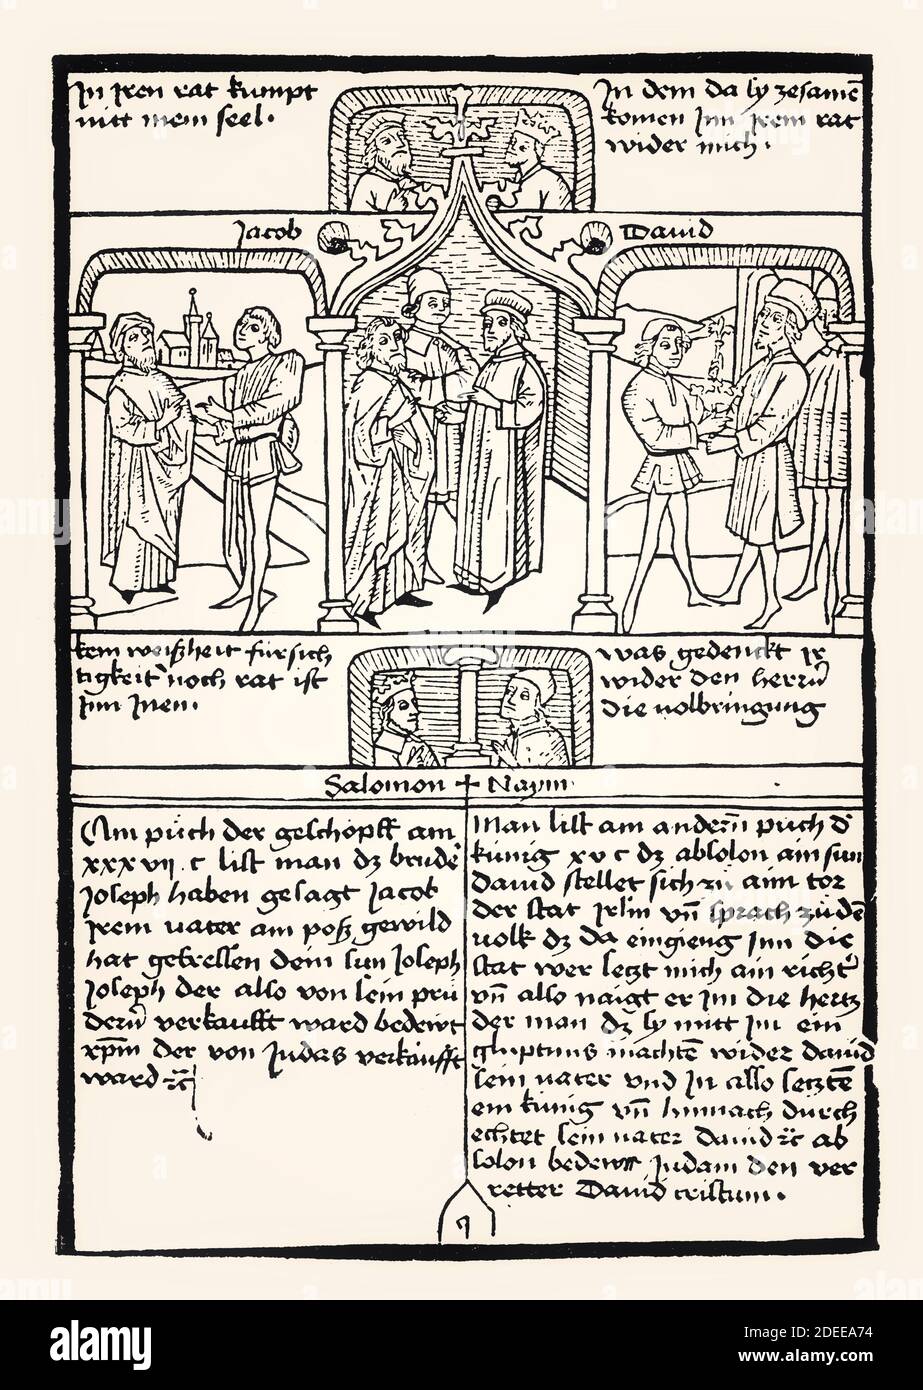 In iren rat kumpt
nitt mein seel.
In dem da sy zesamē
komen Inn irem rat
wider mich.
Jacob
David
kein weißheit fürsich
tigkeit noch rat ist
Inn Inen.
was gedenckt ir
wider den herrn̄
die volbringung
Salomon + Naym
Am půch der geschöpff am
xxxvij. c list man dz brude᷑
Joseph haben gesagt Jacob
irem vater am poß gewild
hat gefressen dein sun Joseph
Joseph der also von sein prü
dern̄ verkaufft ward bedewt
xp̄m der von Judas verkaufft
ward ꝛc̄
Man list am andern̄ půch d᷑
künig xv c dz absolon ain sun
david stellet sich zů aim tor
der stat irl̄m vn̄ sprach zů dē
volk dz da eingieng Inn die
stat wer setzt mich ain richt᷑
vn̄ also naigt er im die hertz
der man dz sy mitt im ein
machtē wider david
sein vater vnd In also setztē
ein künig vn̄ hinnach durch
echtet sein vater david ꝛc̄ ab
solon bedewt Judam den ver
retter David cristum.
alamy
Image ID: 2DEEA74
www.alamy.com